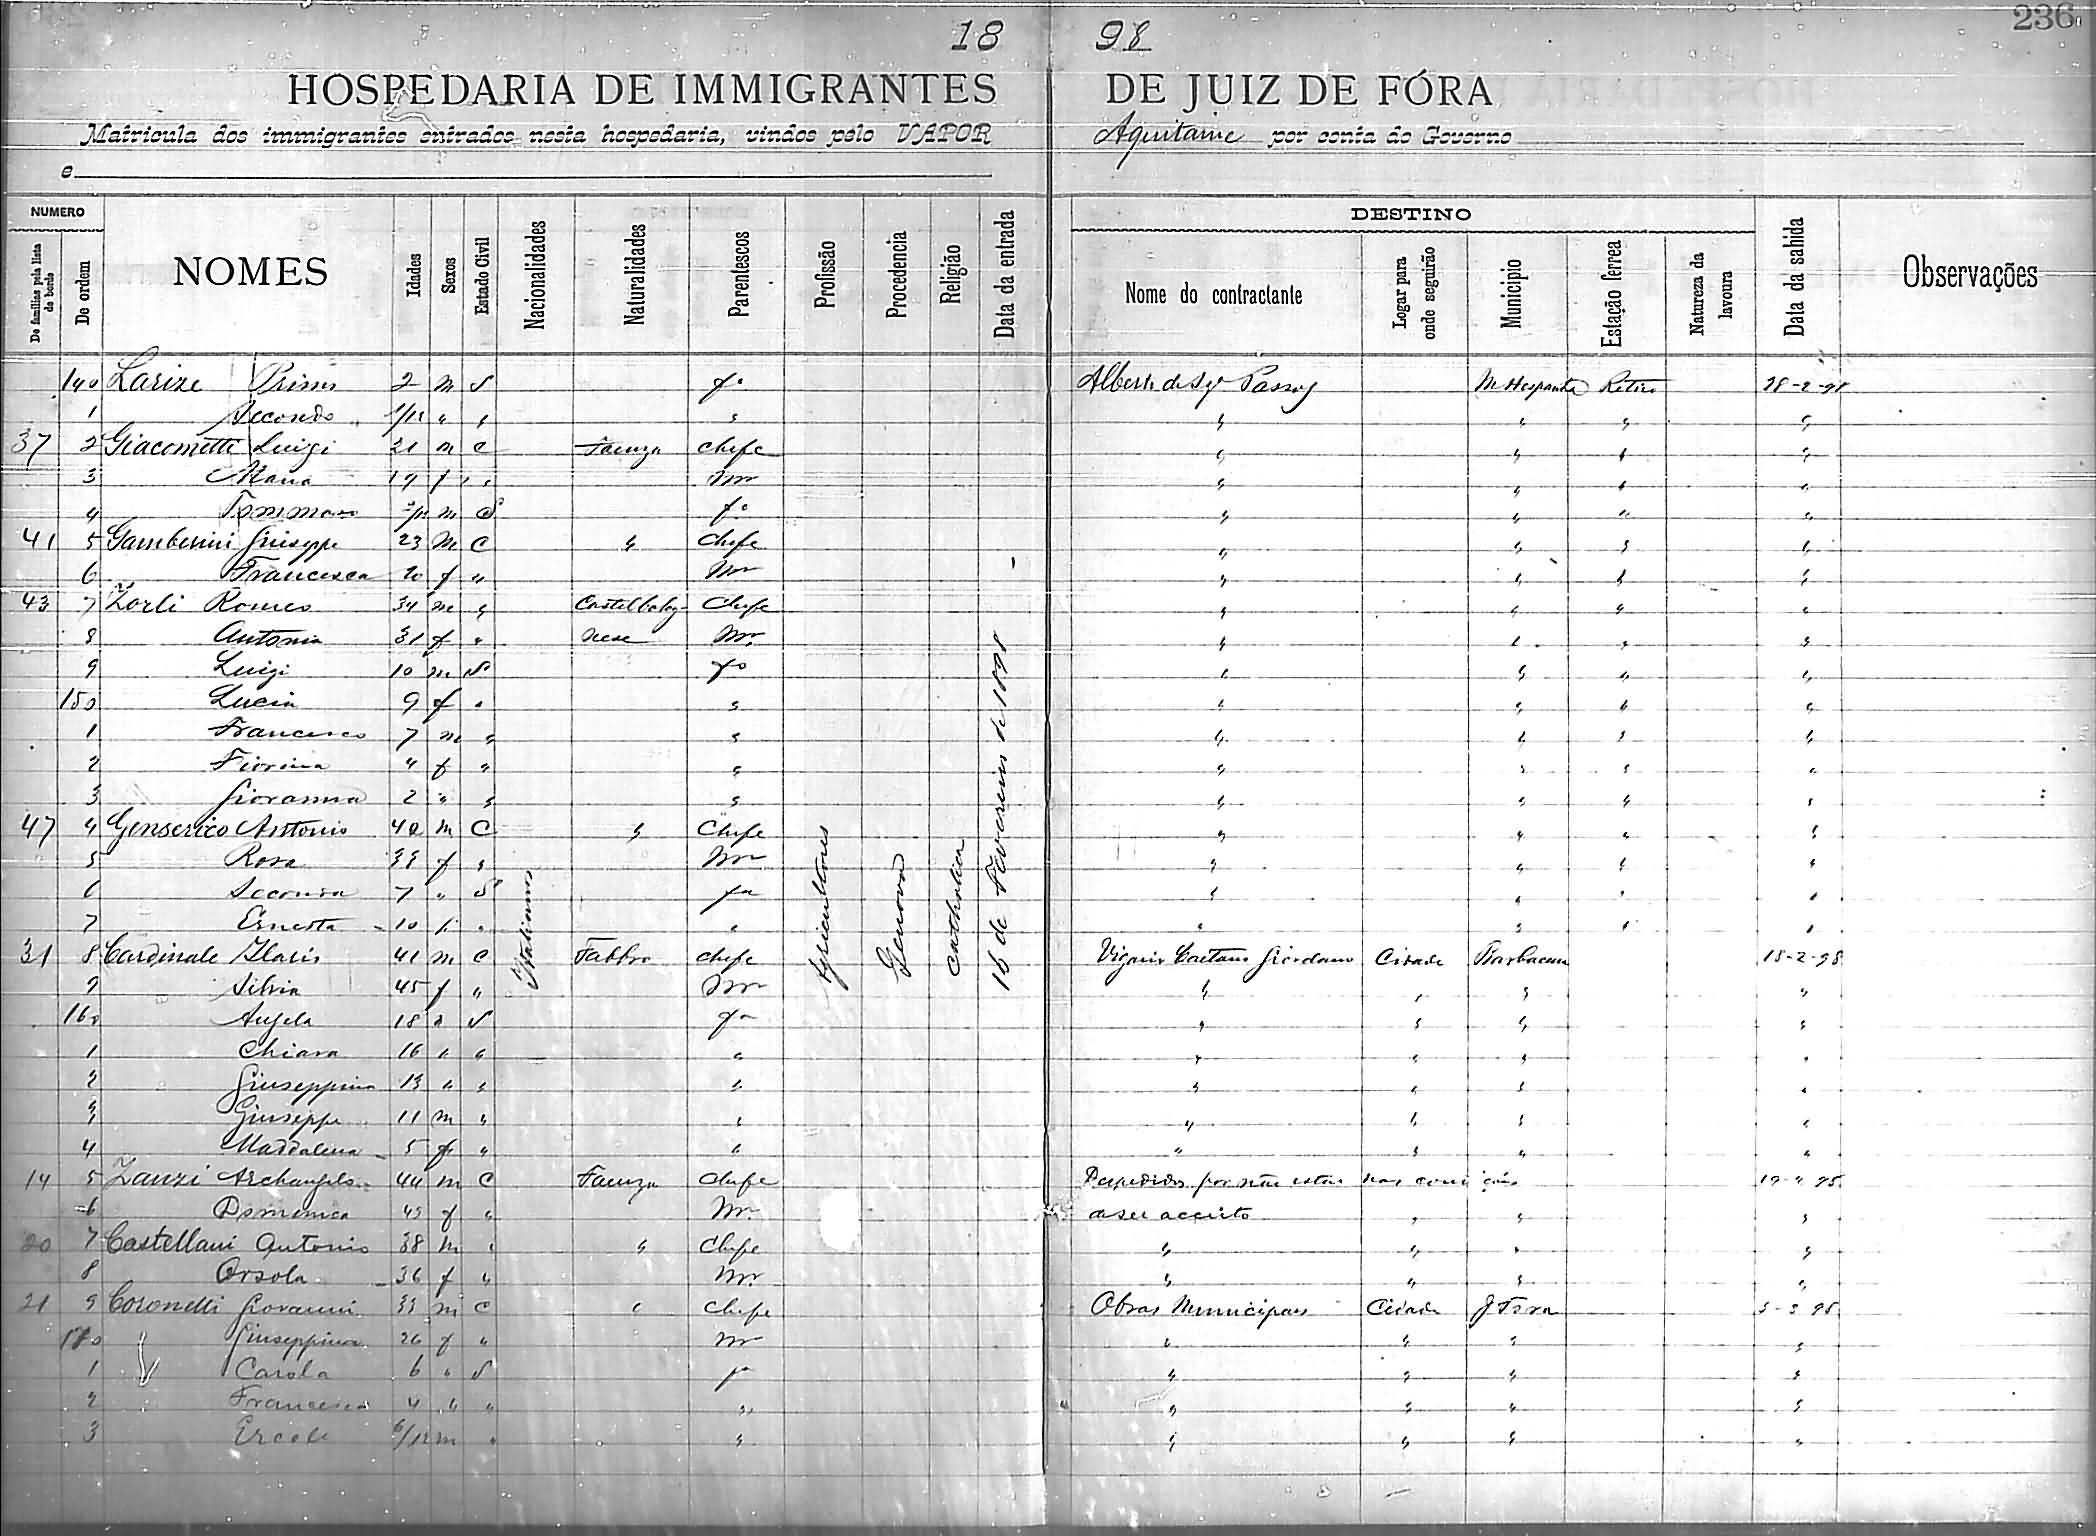 236
18 98
HOSPEDARIA DE IMMIGRANTES DE JUIZ DE FÓRA
Matricula dos immigrantes entrados nesta hospedaria, vindos pelo VAPOR Aquitaine por conta do Governo
e
NUMERO DESTINO
De familias pela lista de bordo De ordem NOMES Idades Sexos Estado Civil Nacionalidades Naturalidades Parentescos Profissão Procedencia Religião Data da entrada Nome do contractante Logar para onde seguirão Municipio Estação ferrea Natureza da lavoura Data da sahida Observações
Italianos Agricultores Genova Catholica 16 de Fevereiro de 1898
140 Larize Primo 2 m S fo Alberto de Passos M Hespanha Retiro 28-2-98
1 Secondo /12 " " " " " " "
37 2 Giacometti Luigi 21 m C Faenza Chefe " " " "
3 Maria 19 f " mr " " " "
4 Tommaso /12 m S fo " " " "
41 5 Gamberini Giuseppe 23 m C " Chefe " " " "
6 Francesca 20 f " mr " " " "
43 7 Zorli Romeo 34 m " Castelbolog- Chefe " " " "
8 Antonia 31 f " nese mr " " " "
9 Luigi 10 m S fo " " " "
150 Lucia 9 f " " " " " "
1 Francesco 7 m " " " " " "
2 Fiorina 4 f " " " " " "
3 Giovanna 2 " " " " " " "
47 4 Genserico Antonio 40 m C " Chefe " " " "
5 Rosa 33 f " mr " " " "
6 Seconda 7 " S fa " " " "
7 Ernesta 10 f " " " " " "
31 8 Cardinale Ilario 41 m C Fabbro Chefe Vigario Caetano Giordano Cidade Barbacena 18-2-98
9 Silvia 45 f " mr " " " "
160 Angela 18 " S fa " " " "
1 Chiara 16 " " " " " " "
2 Giuseppina 13 " " " " " " "
3 Giuseppe 11 m " " " " " "
4 Maddalena 5 f " " " " " "
14 5 Zanzi Archangelo 44 m C Faenza Chefe Despedidos por não estar nas condições
6 Domenica 45 f " mr de ser acceito " " "
20 7 Castellani Antonio 38 m " " Chefe " " " "
8 Orsola 36 f " mr " " " "
21 9 Coronelli Giovanni 33 m C " Chefe Obras Municipaes Cidade J Fora
170 Giuseppina 26 f " mr " " " "
1 Carola 6 " S fa " " " "
2 Francesca 4 " " " " " " "
3 Ercole 6/12 m " " " " " "